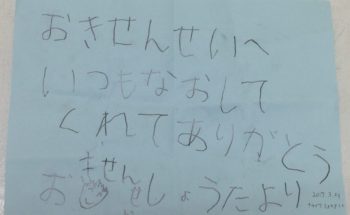 おきせんせいへ
いつもなおして
くれてありがとう
おきせんせ
しょうたより